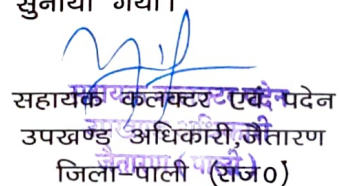 सुनाया गया।
सहायक कलक्टर एवं पदेन
उपखण्ड अधिकारी,जैतारण
जिला-पाली (राज0)